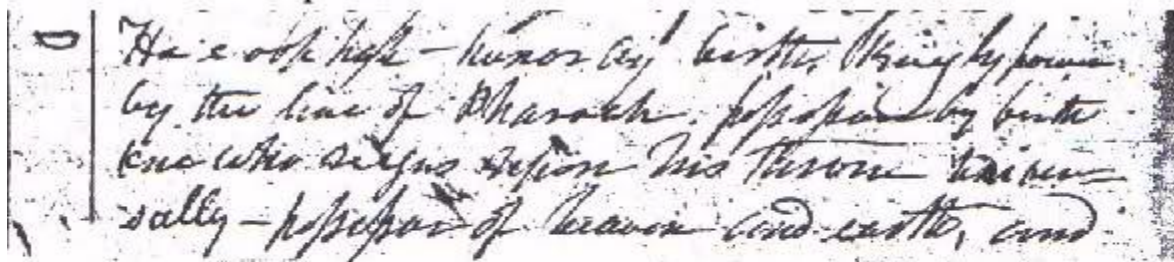 Ha e oop hah - honor by birth, kingly power
by the line of Pharoah. possession by birth
one who reigns upon his throne univer=
sally - possessor of heaven and earth, and